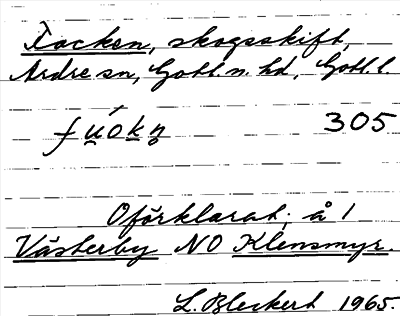 Tocken, skogsskift,
Ardre sn, Gotl. n. hd, Gotl. l.
fu̯ókn̥ 305
Oförklarat; å 1
Västerby NO Klensmyr.
L. Bleckert 1965.